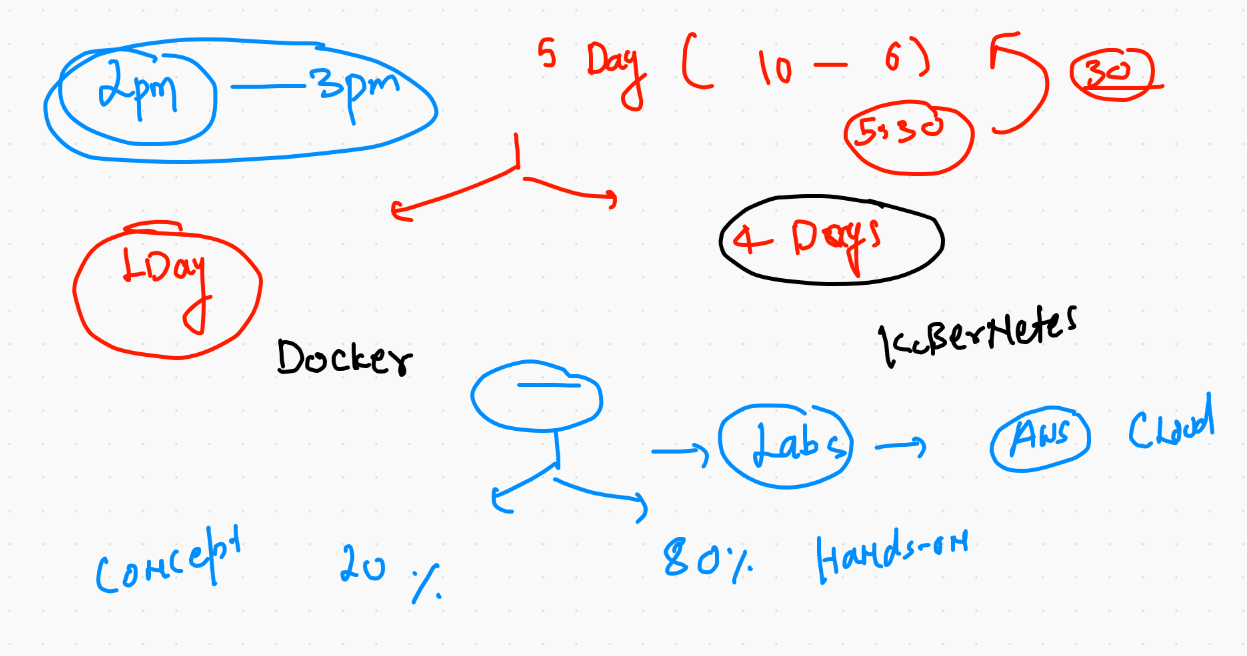 2pm — 3pm
5 Day ( 10 — 6 )
30
5:30
1 Day
4 Days
Docker
KuBerNetes
Labs → AWS Cloud
Concept 20 %
80% Hands-on